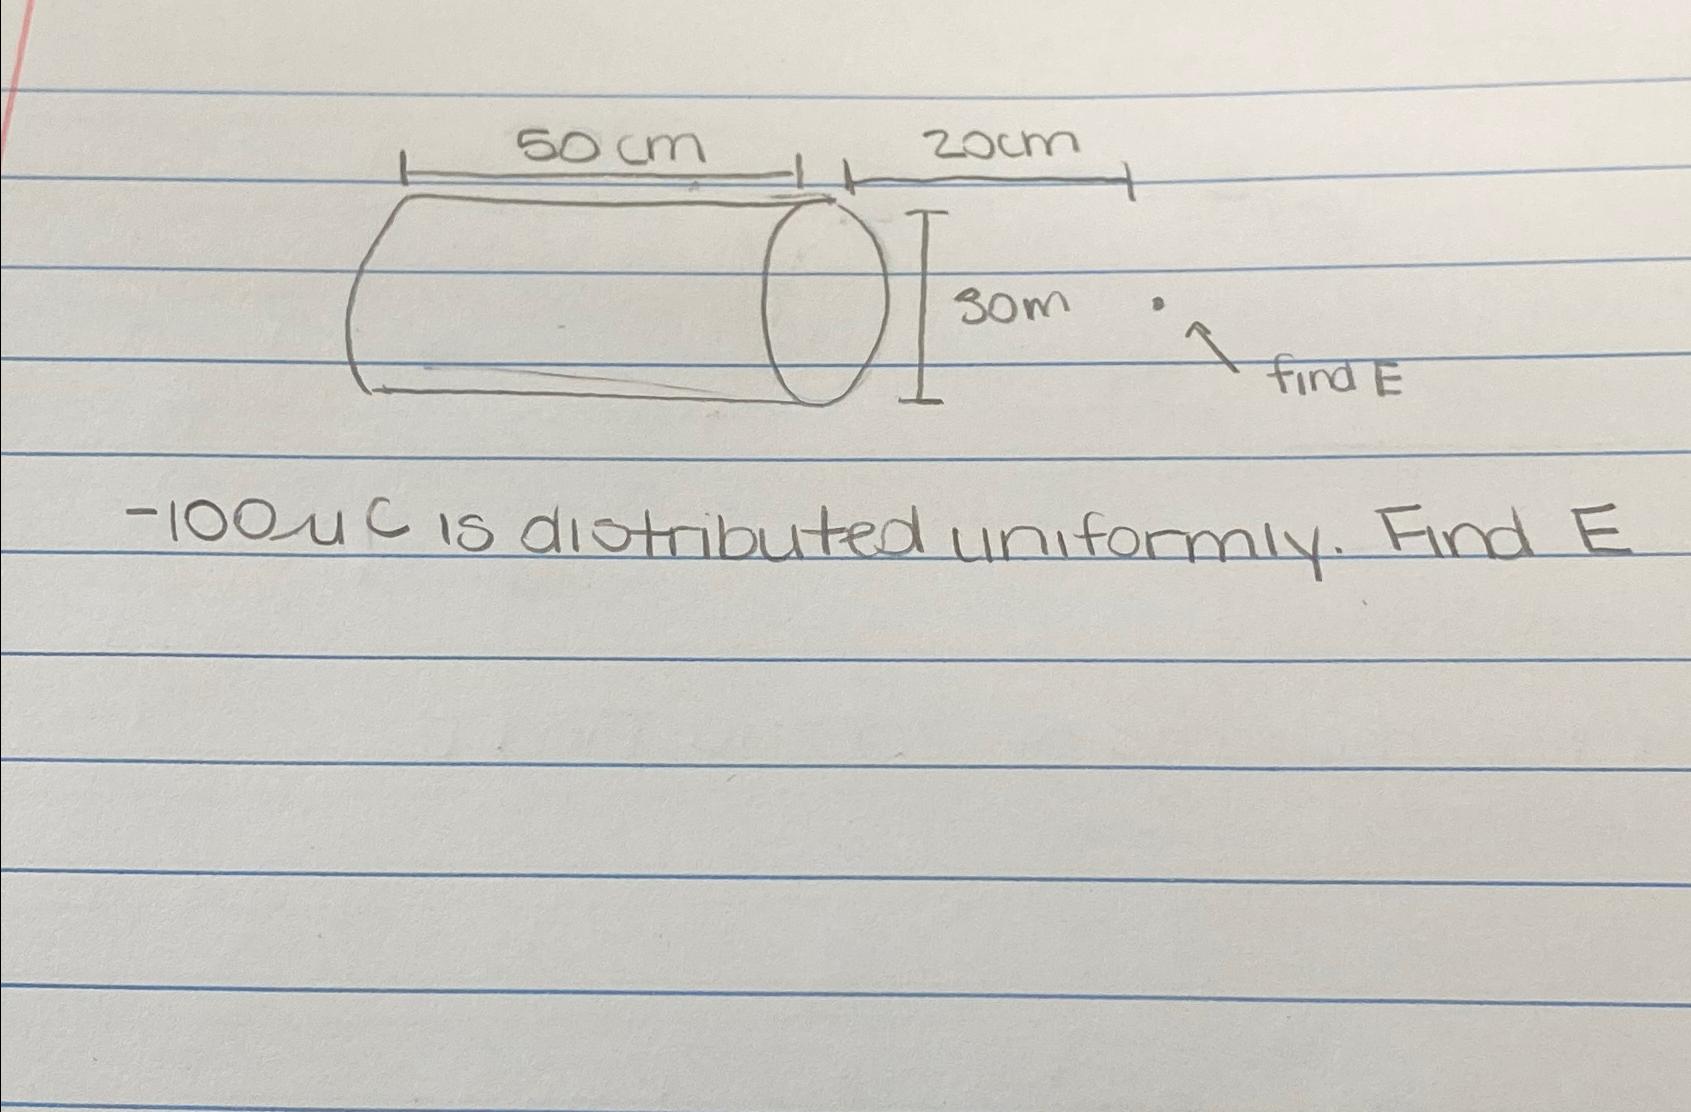 50 cm 20cm
30m
find E
-100μC is distributed uniformly. Find E